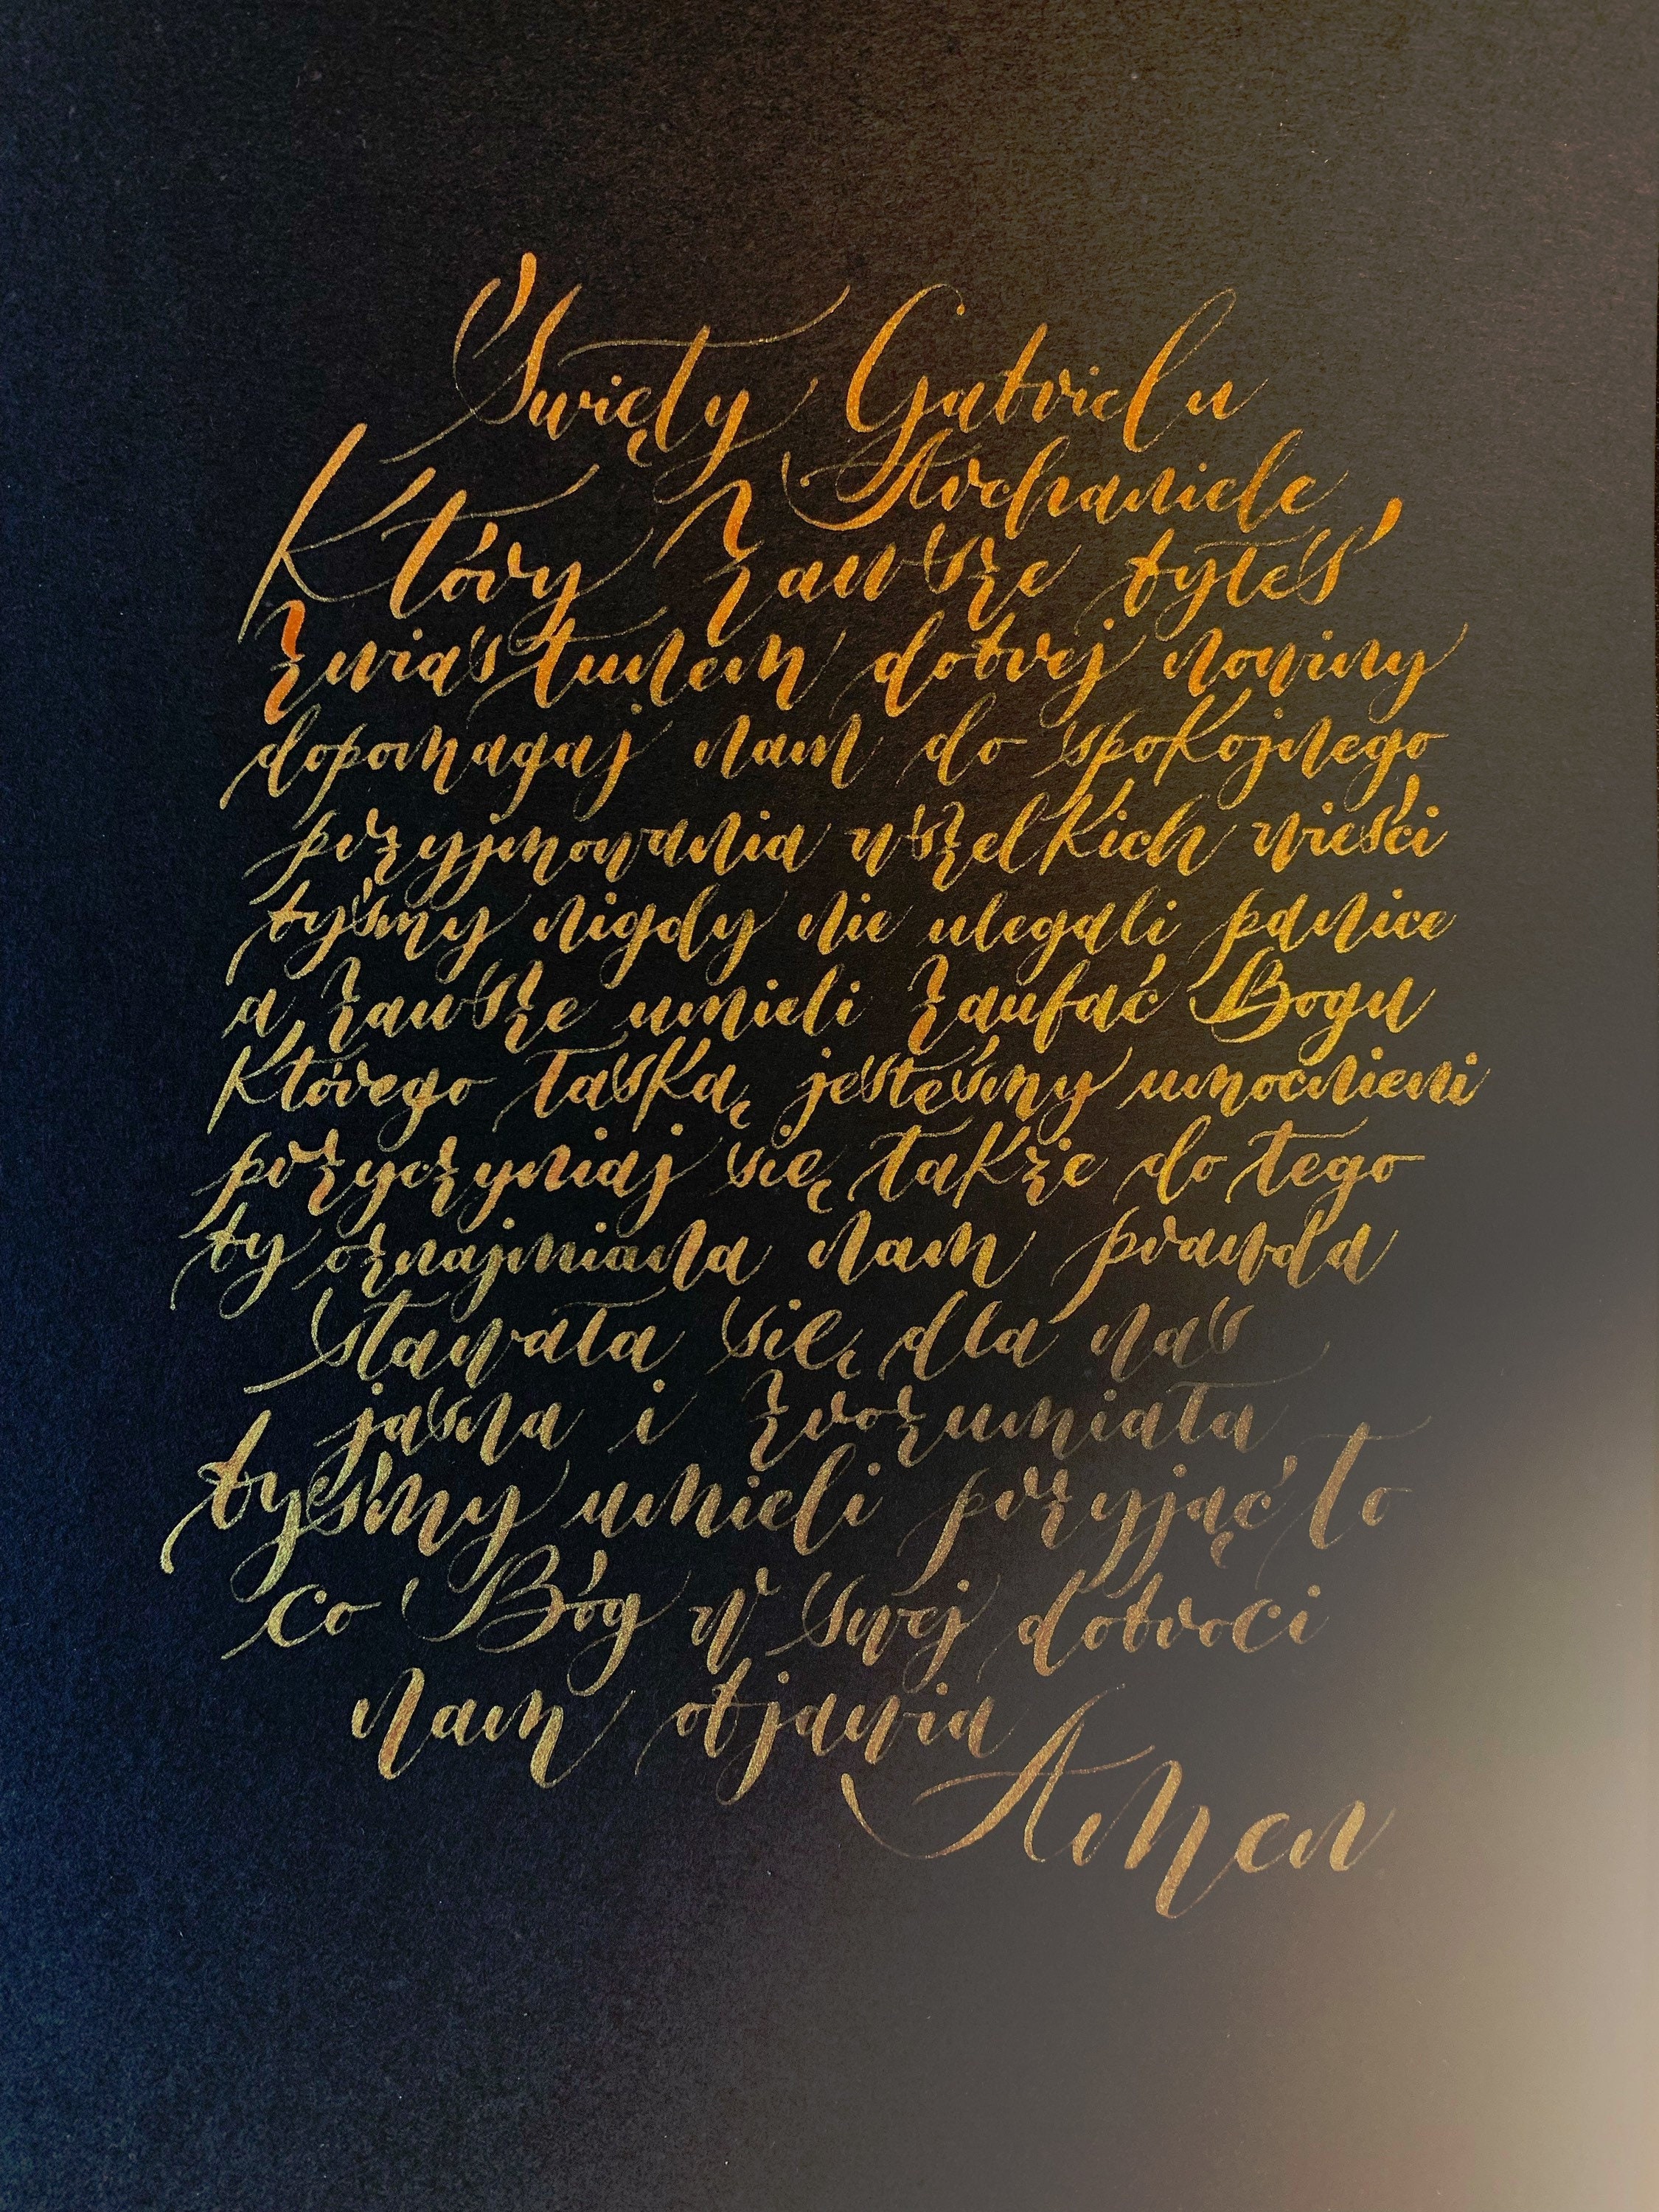 Święty Gabrielu
Archaniele
Który zawsze byłeś
zwiastunem dobrej nowiny
dopomagaj nam do spokojnego
przyjmowania wszelkich wieści
byśmy nigdy nie ulegali panice
a zawsze umieli zaufać Bogu
Którego łaską jesteśmy umocnieni
przyczyniaj się także do tego
by oznajmiana nam prawda
stawała się dla nas
jasna i zrozumiała
byśmy umieli przyjąć to
co Bóg w swej dobroci
nam objawia
Amen